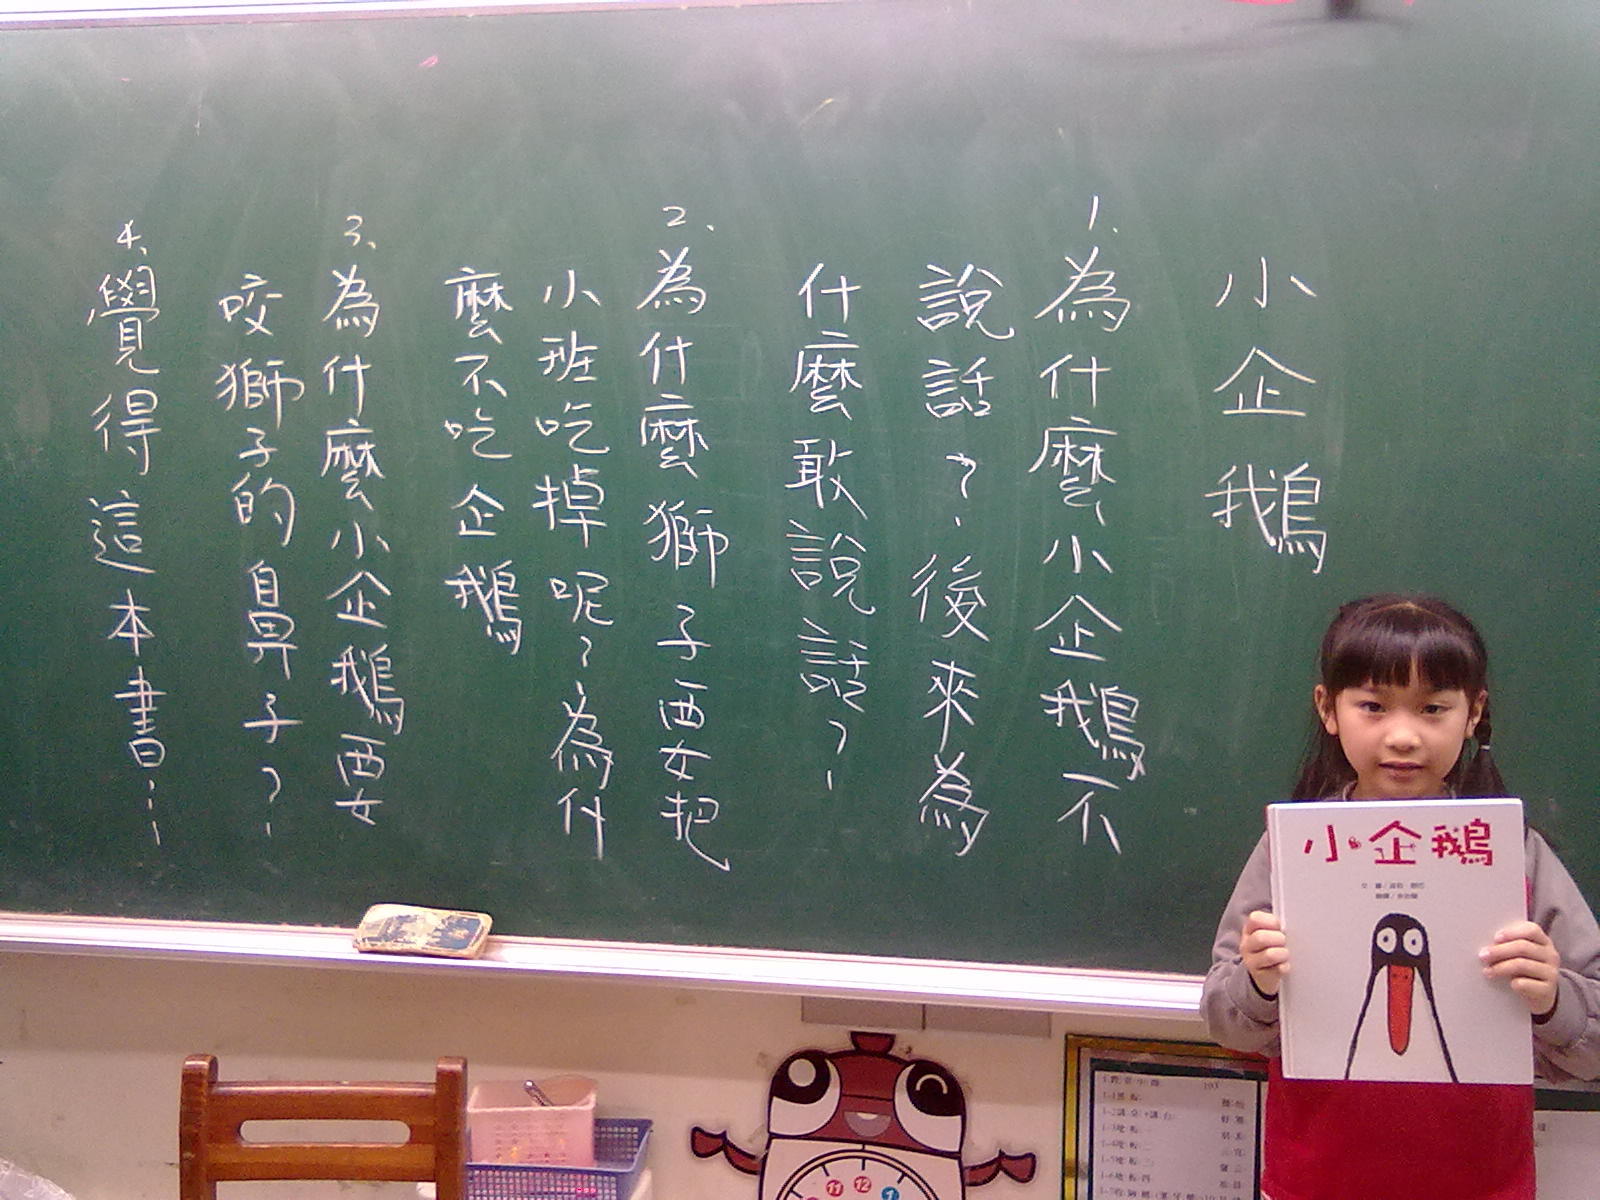 小企鵝
1.為什麼小企鵝不
說話?後來為
什麼敢說話?
2.為什麼獅子要把
小班吃掉呢?為什
麼不吃企鵝
3.為什麼小企鵝要
咬獅子的鼻子?
4.覺得這本書…
小企鵝
103
11 12 1